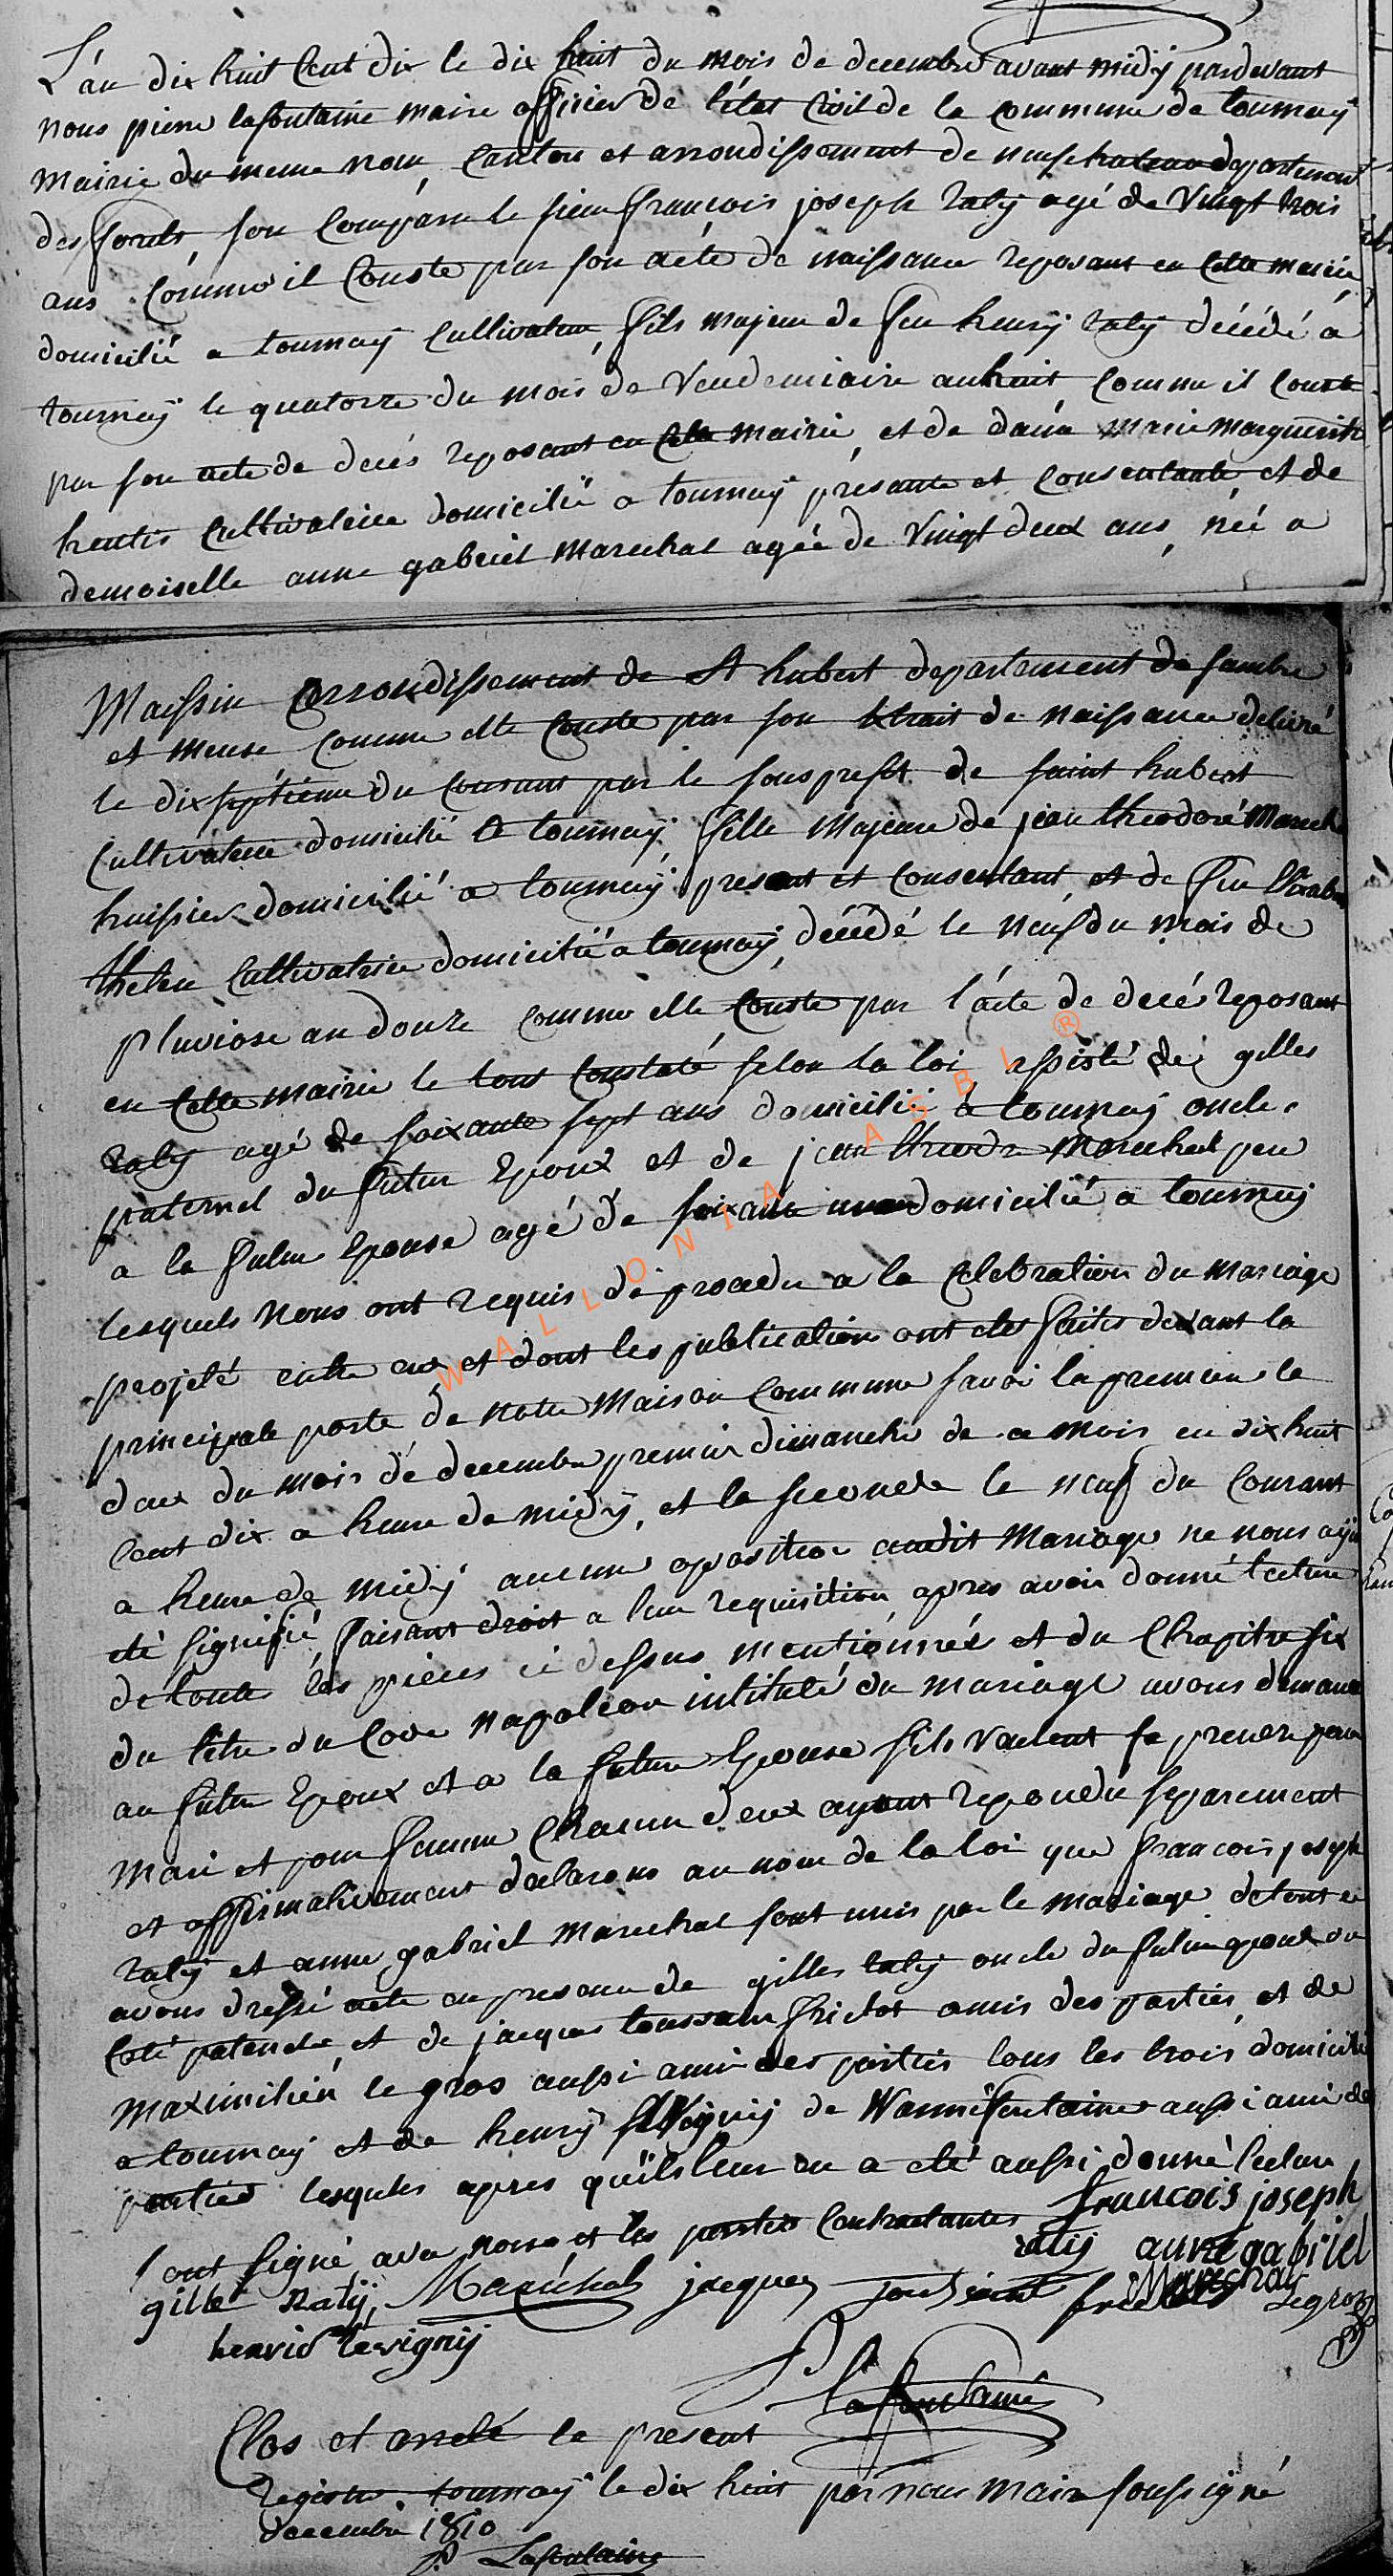 L'an dix huit Cent dix le dix huit du mois de decembre avant midÿ pardevant
nous pierre lafontaine maire officier de l'état Civil de la commune de tournaÿ
mairie du meme nom, Canton et arrondissement de neufchateau departement
des forets, son Comparu le sieur françois joseph ratÿ agé de Vingt trois
ans. Comme il Conste par son acte de naissance reposant en Cette mairie
domicilié a tournaÿ Cultivateur, fils majeur de feu henrÿ ratÿ décédé a
tournaÿ le quatorze du mois de Vendemiaire an huit Comme il Conste
par son acte de deces reposant en Cette mairie, et de marie marguerite
Cultivatrice domicilié a tournaÿ présante et Consentante et de
demoiselle anne gabriel Marechal agée de Vingt deux ans, née a
Maissin arrondissement de St hubert departement de sambre
et meuse Comme elle Conste par son Extrait de naissance delivré
le dix septième du Courant par le sousprefet de saint hubert
Cultivatrice domicilié a tournaÿ, fille Majeure de jean theodore Marech
huissier domicilié a tournaÿ present et Consentant, et de feu
Cultivatrice domicilié a tournaÿ, décédé le neuf du mois de
pluviose an douze comme elle Conste par l'acte de decé reposant
en Cette mairie le tout Constaté selon la loi assisté de gilles
ratÿ agé de soixante sept ans domicilié a tournaÿ oncle
paternel du futur Epoux et de jean theodre Marechal pere
a la future Epouse agé de soixante domicilié a tournaÿ
lesquels nous ont requis de proceder a la Celebration du mariage
projeté entre eux et dont les publications ont etes faites devant la
principale porte de notre Maison Commune savoir la premiere le
deux du mois de decembre premier dimanche de ce mois en dix huit
Cent dix a heure de midÿ, et la seconde le neuf du Courant
a heure de midÿ aucune oposition audit Mariage ne nous aÿa
eté signifié, faisant droit a leur requisition apres avoir donné lecture
de toutes les pieces ci dessus mentionnés et du Chapitre six
du titre du Code Napoléon intitulé du mariage avons demand
au futur Epoux et a la future Epouse sils veulent se prendre pour
Mari et pour femme Chacun d'eux ayant repondu separement
et affirmativement declarons au nom de la loi que françois joseph
ratÿ et anne gabriel Marechal sont unis par le mariage de tout ce
avons dressé acte en presence de gilles ratÿ oncle du futur epoux du
Coté paternelle et de jacques toussaint frictot amis des parties et de
Maximilien le gros aussi ami des parties tous les trois domicilié
a tournaÿ et de henrÿ de Warmifontaine aussi ami de
parties lesquels apres qu'ils leur en a eté aussi donné lecture
l'ont signé avec nous et les parties Contractantes francois joseph
ratij anne gabriel
gille Ratÿ, Maréchal jacques toussaint Marechal Legros
henrid
P Lafontaine
Clos et areté le present
Registre tournaÿ le dix huit par nous maire soussigné
decembre 1810
P. Lafontaine
WALLONIA ASBL ®